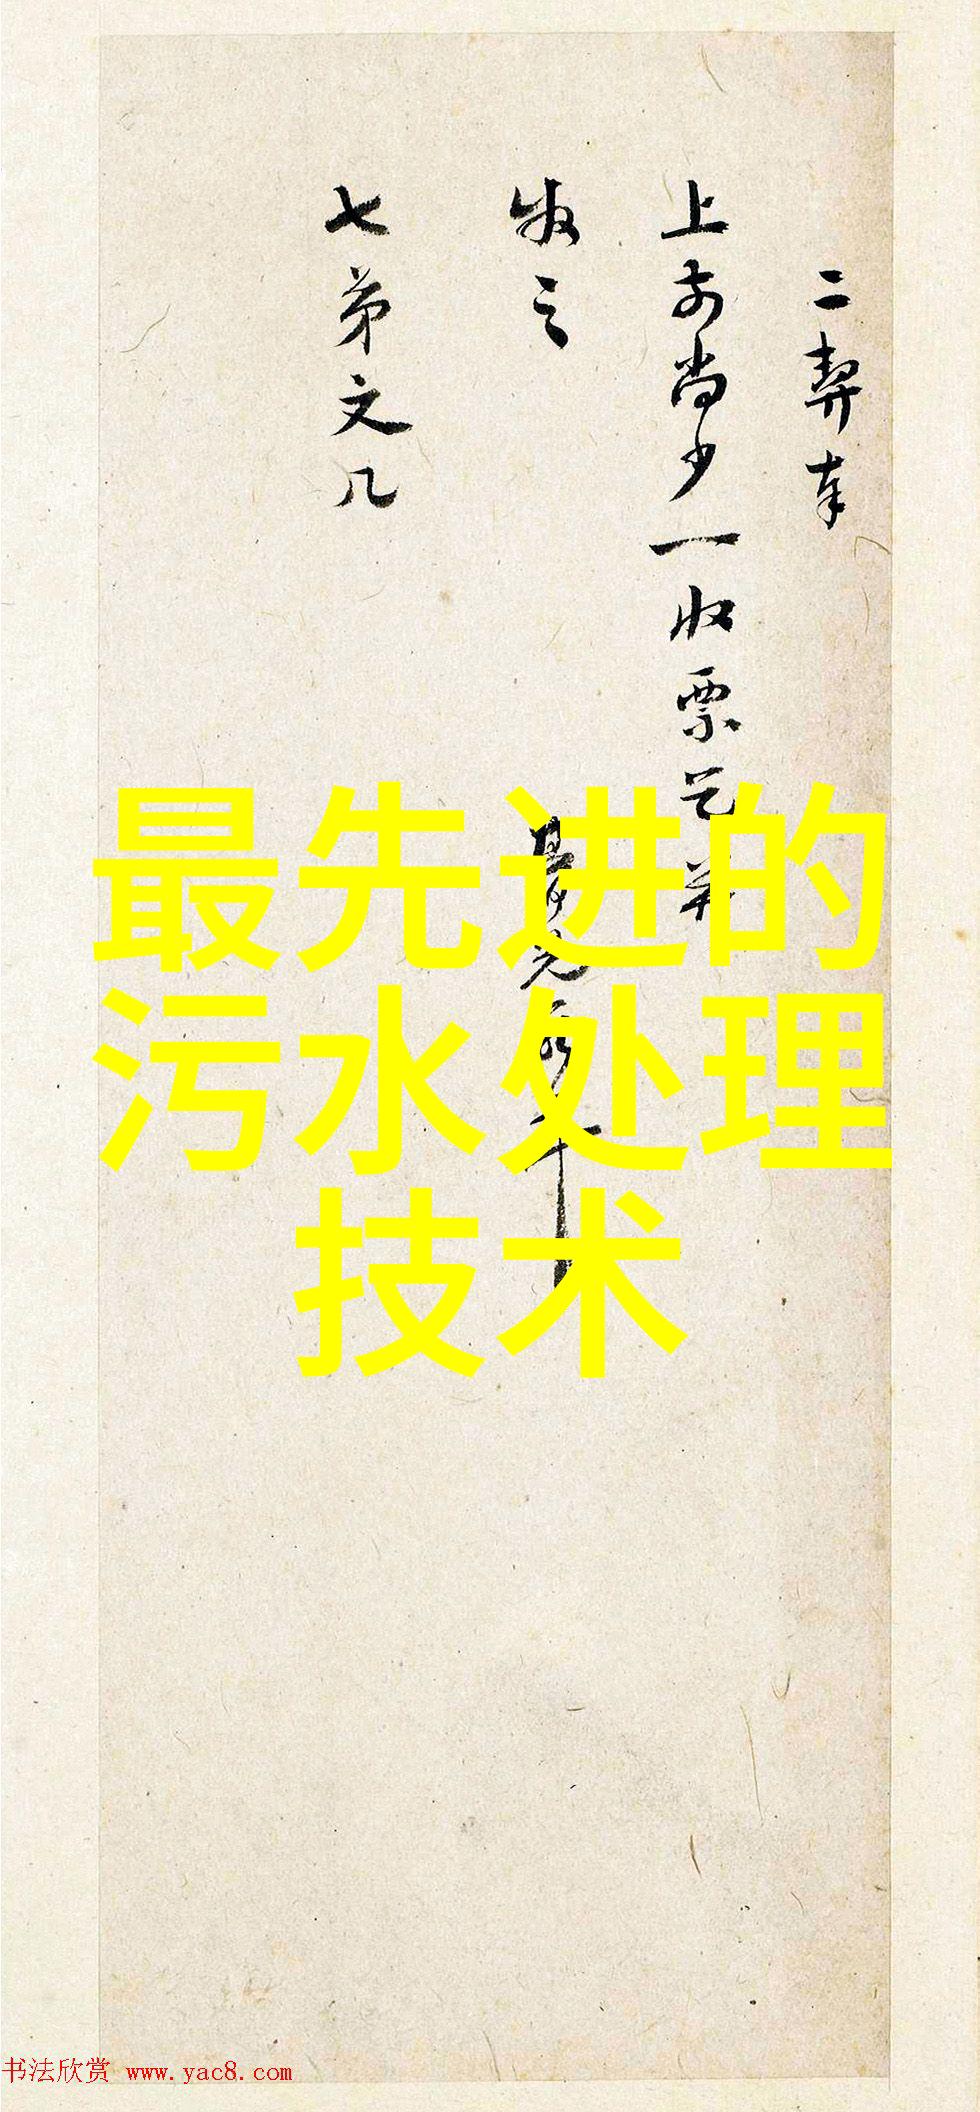 二契奉
上前尚少一收票乞并
收之
七弟文几
最先进的
污水处理
技术
书法欣赏 www.yac8.com